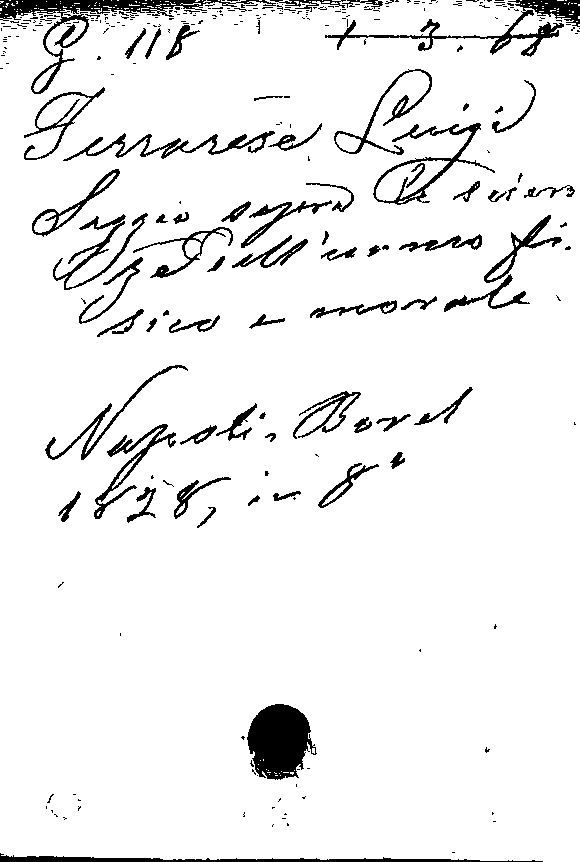 G. 118 1. 3. 68
Ferrarese Luigi
Saggio sopra la scien
za dell'uomo fi.
sico e morale.
Napoli, Borel
1828, in 8°